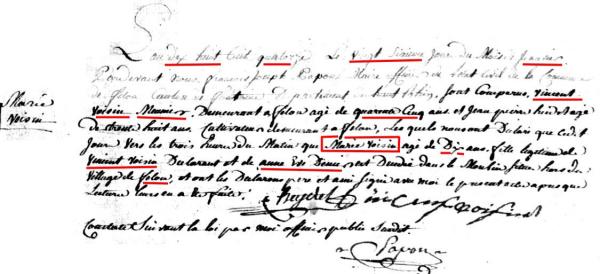 L'an dix huit Cent quatorze Le vingt Sixieme Jour du Mois de Janvier
Pardevant nous Papon Maire officier de L'etat Civil de la Commune
de felon Canton de Departement du haut Rhin, Sont Comparus, Vincent
Voisin Meunier, Demeurant a felon agé de quarante Cinq ans et Jean pierre agé
de trente huit ans. Cultivateur demeurant a felon, Les quels nous ont Déclaré que Cedit
Jour Vers les trois heures du Matin que Marie Voisin agé de Dix ans. fille legitime de
Vincent Voisin Declarant et de anne Eve Denis est Décédé dans le Moulin hors du
Village de felon, et ont les Declarans pere et ami Signé avec moi le present acte apres que
Lecture leur en a été faite.
Marie
Voisin
Vincent Voisin
Constaté Suivant la loi par moi officier public Susdit.
Papon